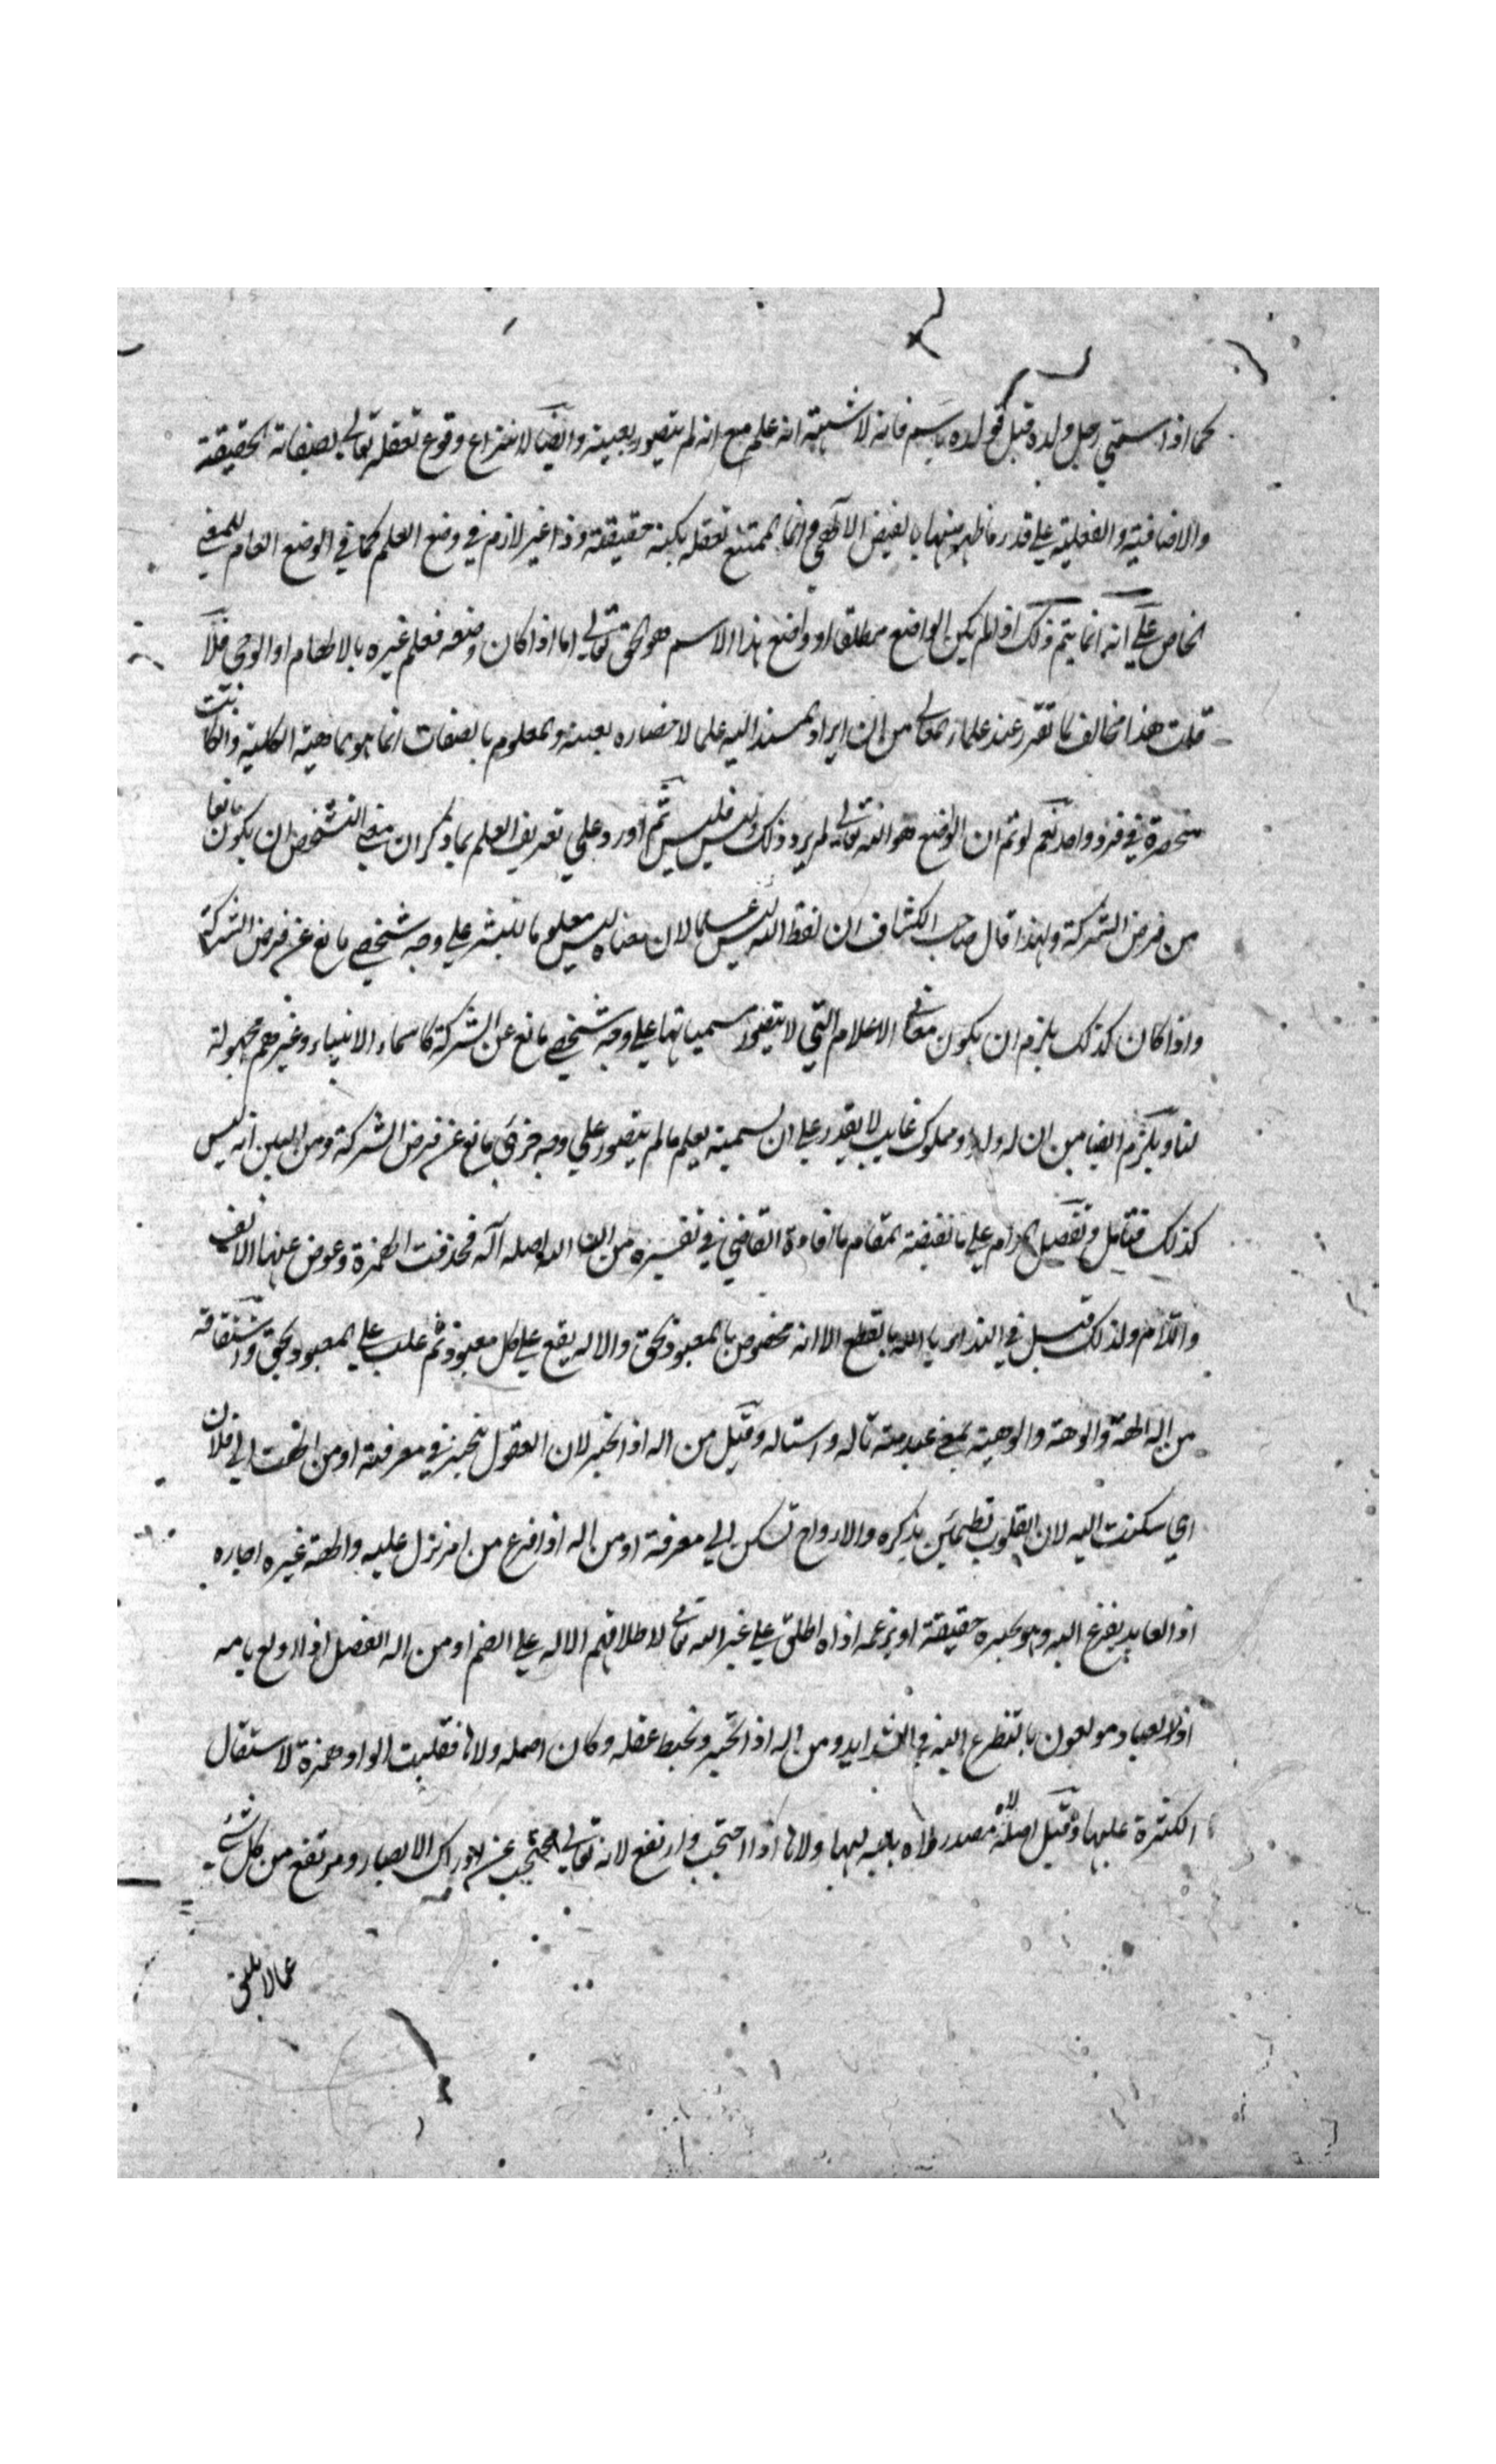 كما اذا سمي رجل ولده قبل تولده باسم فانه لا شبهة انه علم مع انه لم يتصور بعينه وايضا لا نزاع وقوع تعقله تعالي بصفاته الحقيقية
والاضافية والفعلية علي قدر ما ظهر منها بالفيض الالهي وانما الممتنع تعقله بكنه حقيقته وذا غير لازم في وضع العلم كما في الوضع العام للمعني
الخاص علي انه انما يتم ذلك اذا لم يكن الواضع مطلقا او واضع هذا الاسم هو الحق تعالي اما اذا كان وضعه فعلم غيره بالالهام او الوحي فلا
قلت هذا مخالف لما تقرر عند علماء المعاني من ان ايراد المسند اليه علما لاحضاره بعينه والمعلوم بالصفات انما هو الماهية الكلية وان كانت
منحصرة في فرد واحد نعم لو تم ان الواضع هو الله تعالي لم يرد ذلك وليس فليس ثم اورد علي تعريف العلم بما ذكر ان معني التشخص ان يكون مانعا
من فرض الشركة ولهذا قال صاحب الكشاف ان لفظ الله ليس علما لان معناه ليس معلوما للبشر علي وجه شخصي مانع عن فرض الشركة
واذا كان كذلك يلزم ان يكون معاني الاعلام التي لا يتصور مسمياتها علي وجه شخصي مانع عن الشركة كاسماء الانبياء وغيرهم مجهولة
لنا ويلزم ايضا من ان له ولد او مملوك غايب لا يقدر علي ان يسميه بعلم ما لم يتصور علي وجه جزئي مانع عن فرض الشركة ومن البين انه ليس
كذلك فتامل وتفصيل المرام علي ما يقتضيه المقام ما افاده القاضي في تفسيره من ان الله اصله اله فحذفت الهمزة وعوض عنها الالف
واللام ولذلك قيل في النداء يا الله بالقطع الا انه مخصوص بالمعبود بحق والاله يقع علي كل معبود ثم غلب علي المعبود بحق واشتقاقه
من اله الهة والوهة والوهية بمعني عبد منه تاله واستاله وقيل من اله اذا تحير لان العقول تتحير في معرفته او من الهت الي فلان
اي سكنت اليه لان القلوب تطمئن بذكره والارواح تسكن الي معرفته او من اله اذا فزع من امر نزل عليه والهه غيره اجاره
اذ العابد يفزع اليه وهو يجيره حقيقة او بزعمه اذا اطلق علي غير الله تعالي لاطلاقهم الاله علي الصنم او من اله الفصيل اذا ولع بامه
اذ العباد مولعون بالتضرع اليه في الشدايد ومن اله اذا تحير وتخبط عقله وكان اصله ولاه فقلبت الواو همزة لاستثقال
الكسرة عليها وقيل اصله لاه مصدر لاه يليه ليها ولاها اذا احتجب وارتفع لانه تعالي محتجب عن ادراك الابصار ومرتفع من كل شئ
عما لا يليق